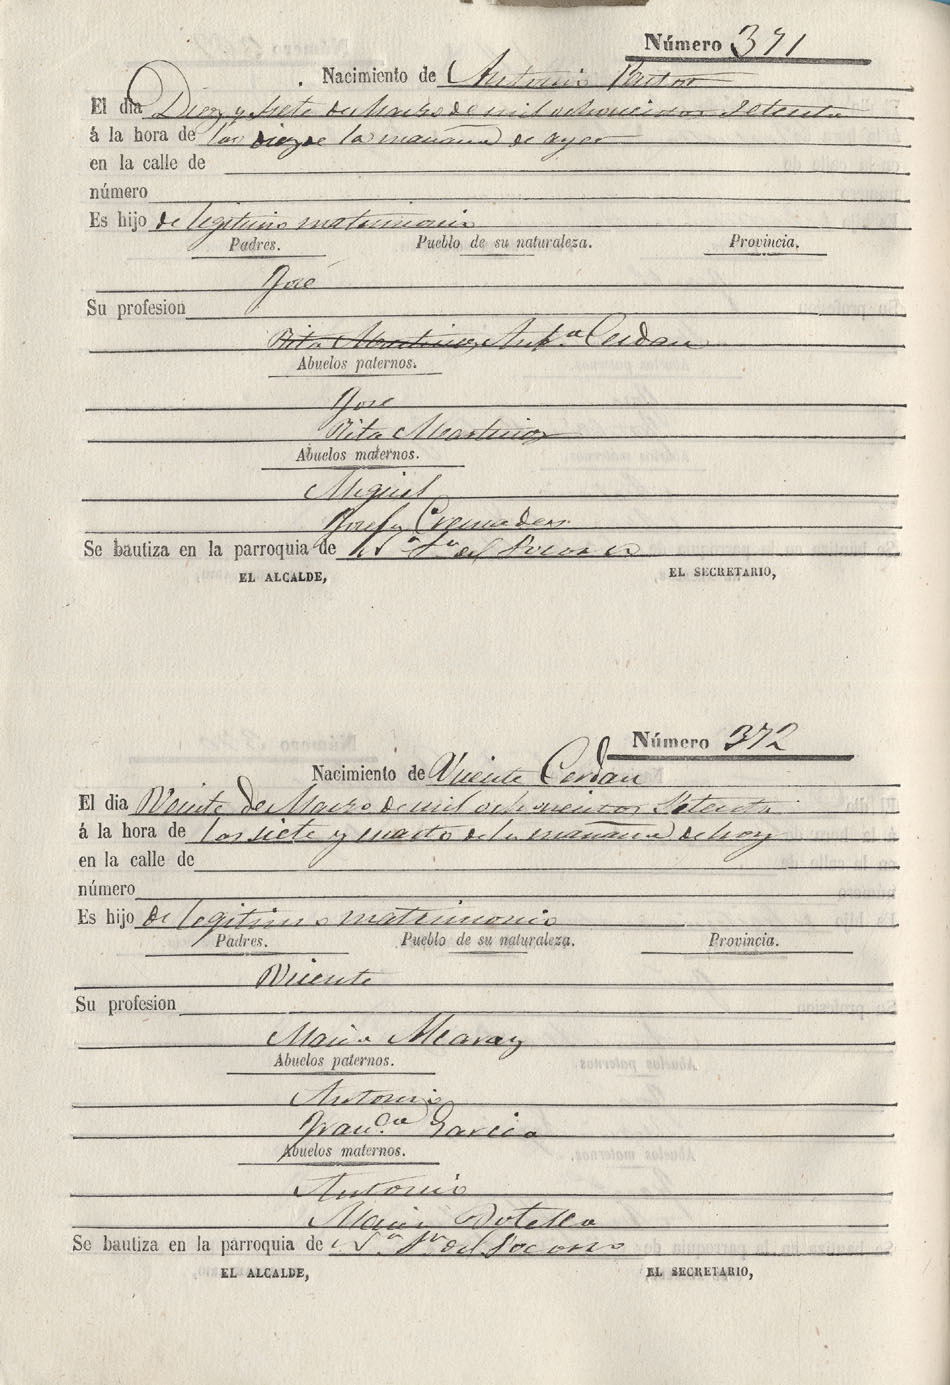 Número 371
Nacimiento de Antonio Pastor
El dia Diez y siete de Marzo de mil ochocientos setenta
á la hora de las diez de la mañana de ayer
en la calle de
número
Es hijo de legitimo matrimonio
Padres. Pueblo de su naturaleza. Provincia.
José
Su profesion
Rita Martinez Ant.ª Cerdan
Abuelos paternos.
José
Rita Martinez
Abuelos maternos.
Miguel
Josefa Cremades
Se bautiza en la parroquia de N.ª Sra del Socorro
EL ALCALDE, EL SECRETARIO,
Número 372
Nacimiento de Vicente Cerdan
El dia Veinte de Marzo de mil ochocientos setenta
á la hora de las siete y cuarto de la mañana de hoy
en la calle de
número
Es hijo de legitimo matrimonio
Padres. Pueblo de su naturaleza. Provincia.
Vicente
Su profesion
Maria Alcaraz
Abuelos paternos.
Antonio
Fran.ca Garcia
Abuelos maternos.
Antonio
Maria Botella
Se bautiza en la parroquia de N.ª Sra del Socorro
EL ALCALDE, EL SECRETARIO,